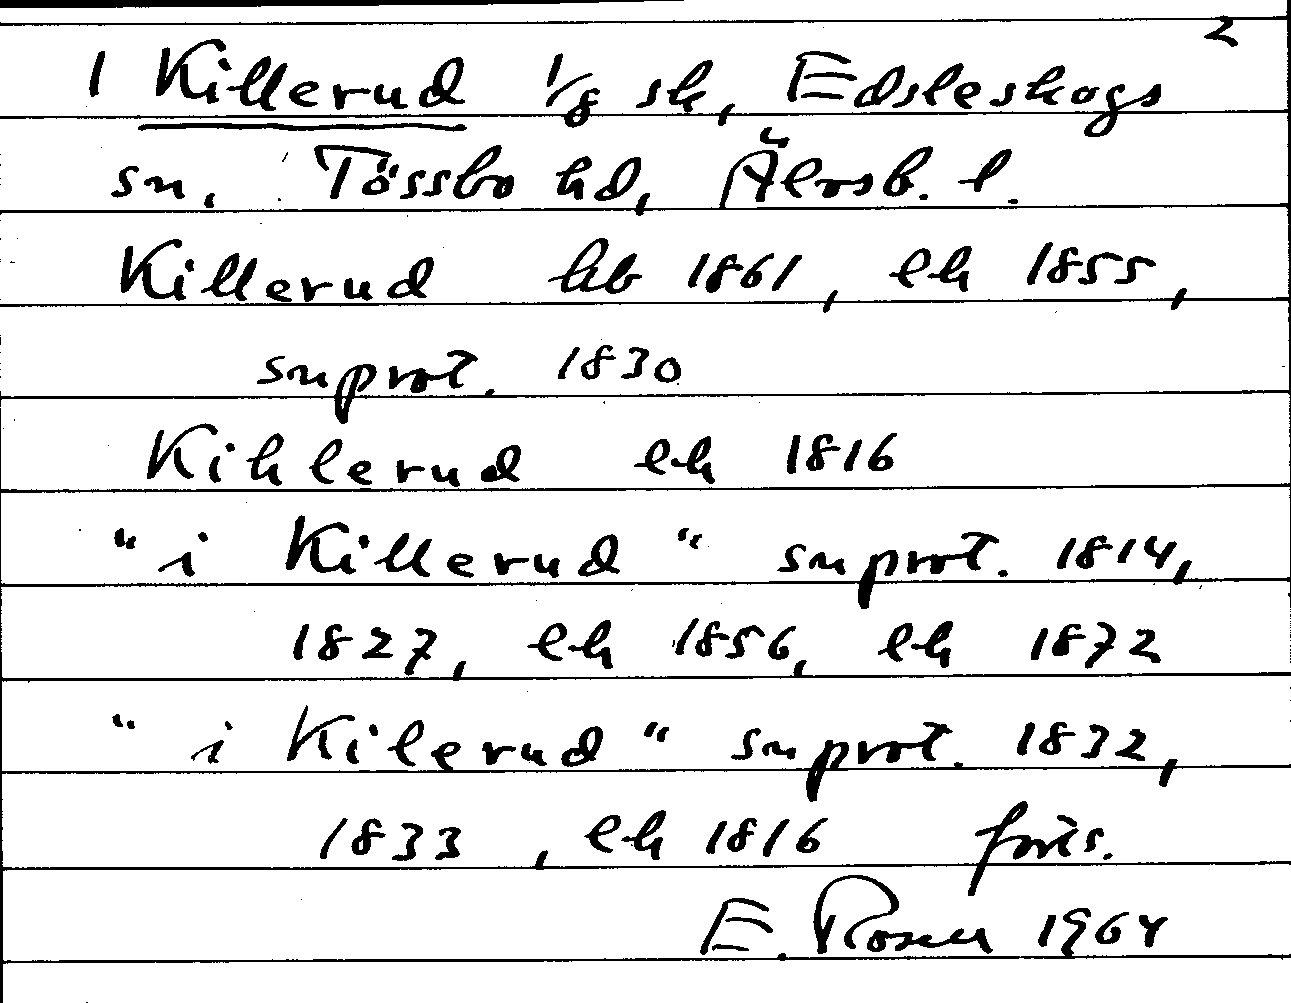 2
1 Killerud 1/8 sk, Edsleskogs
sn. Tössbo hd, Älvsb. l.
Killerud hb 1861, lh 1855,
snprot. 1830
Kihlerud lh 1816
"i Killerud" snprot. 1814,
1827, lh 1856, lh 1872
"i Kilerud" snprot. 1832,
1833, lh 1816 forts.
E. Rosell 1964